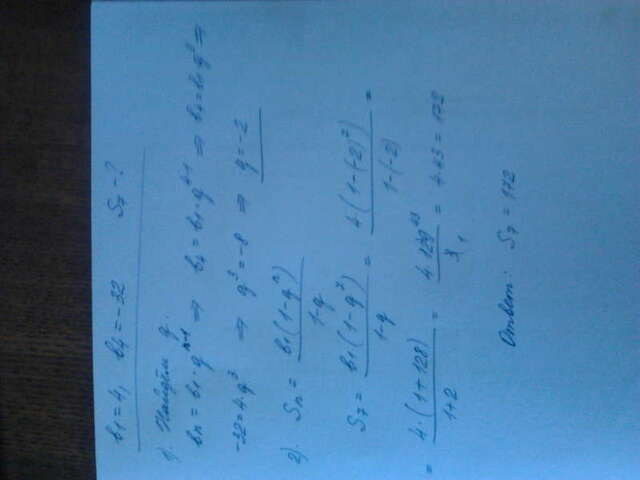 b1=4, b4=-32 S7-?
1). Найдём q.
bn=b1·q^n-1 ⇒ b4=b1·q^4-1 ⇒ b4=b1·q^3 ⇒
-32=4·q^3 ⇒ q^3=-8 ⇒ q=-2
2). Sn = b1(1-q^n)/1-q
S7 = b1(1-q^7)/1-q = 4·(1-(-2)^7)/1-(-2) =
= 4·(1+128)/1+2 = 4·129^43/3 1 = 4·43=172
Ответ: S7=172